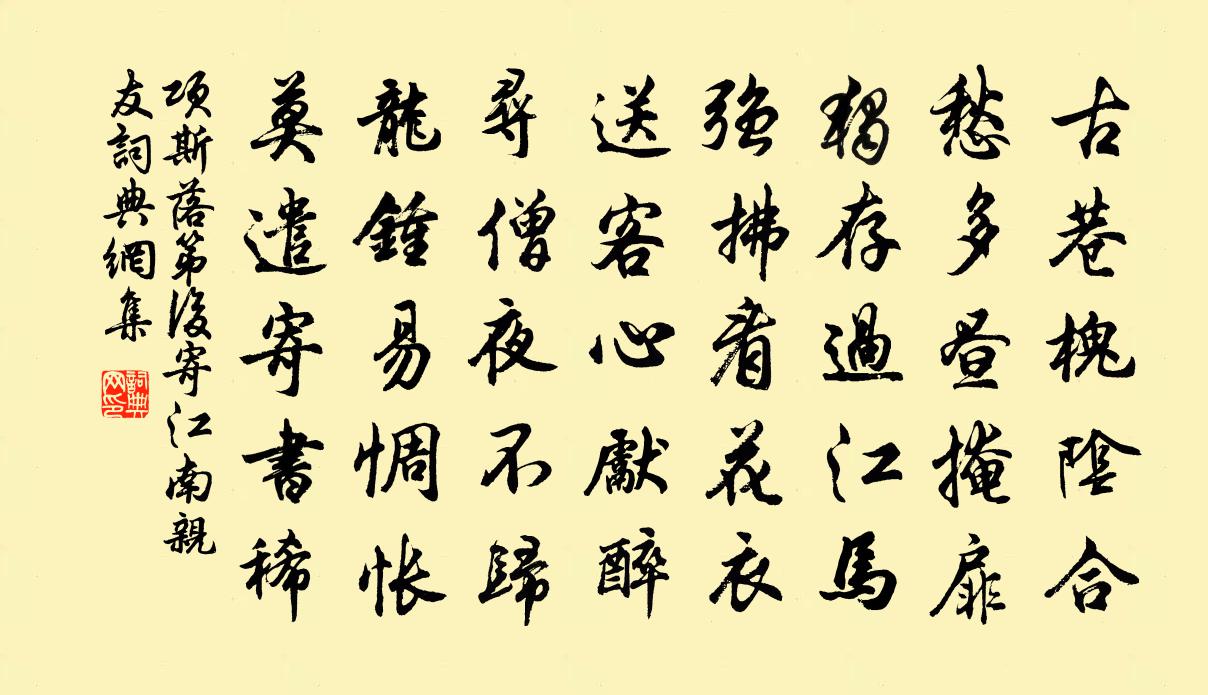 古巷槐陰合
愁多昼掩扉
獨存過江馬
強拂看花衣
送客心獻醉
尋僧夜不歸
龍鍾易惆悵
莫遣寄書稀
項斯落第後寄江南親
友詞典網集
詞典
网印